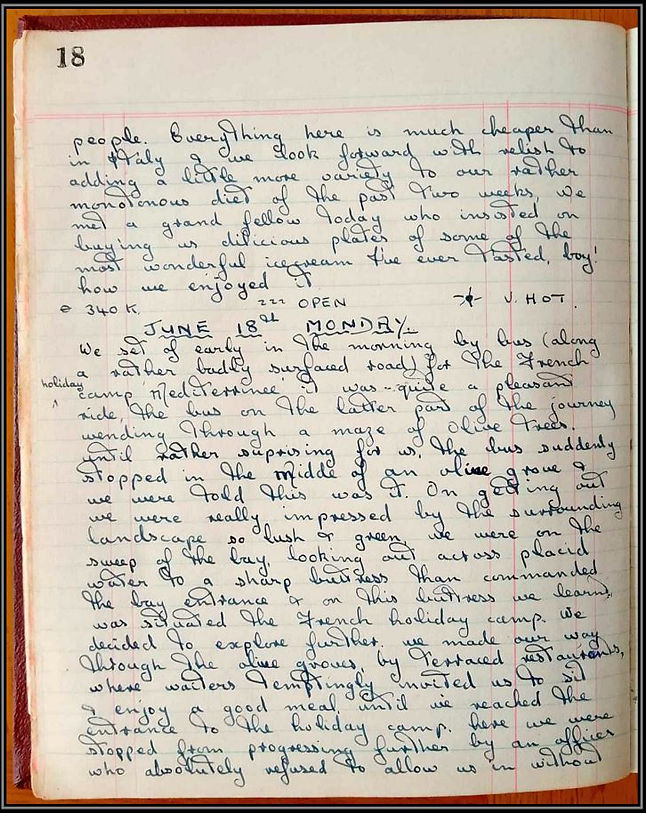 18
people. Everything here is much cheaper than
in Italy & we look forward with relish to
adding a little more variety to our rather
monotonous diet of the past two weeks, we
met a grand fellow today who insisted on
buying us dilicious plates of some of the
most wonderful icecream I've ever tasted, boy!
how we enjoyed it
340 K. OPEN V. HOT.
JUNE 18th MONDAY.
We set of early in the morning by bus (along
a rather badly surfaced road) for the French
holiday
camp, Mediterrinee. it was quite a pleasant
ride, the bus on the latter part of the journey
wending through a maze of olive trees.
until rather suprising for us, the bus suddenly
stopped in the midde of an olive grove &
we were told this was it. On getting out
we were really impressed by the surrounding
landscape so lush & green, we were on the
sweep of the bay, looking out across placid
water to a sharp buttress than commanded
the bay entrance & on this buttress we learns,
was situated the French holiday camp. We
decided to explore further, we made our way
through the olive groves, by terraced restaurants,
where waiters temptingly invited us to sit
& enjoy a good meal, until we reached the
entrance to the holiday camp. here we were
stopped from progressing further by an officer
who absolutely refused to allow us in without